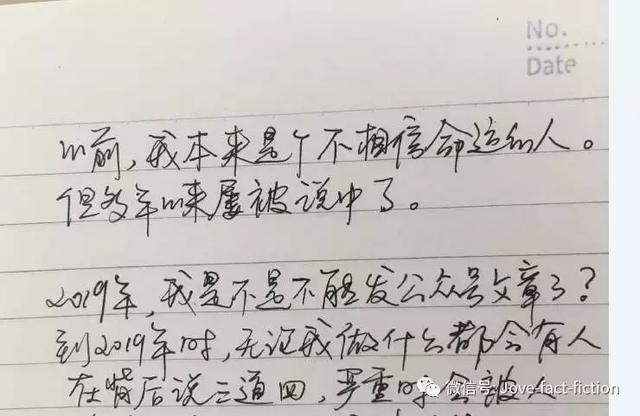 No.
Date
以前，我本来是个不相信命运的人。
但多年以来屡被说中了。
2019年，我是不是不能发公众号文章了？
到2019年时，无论我做什么都会有人
在背后说三道四，严重时会被人
微信号: Jove-fact-fiction